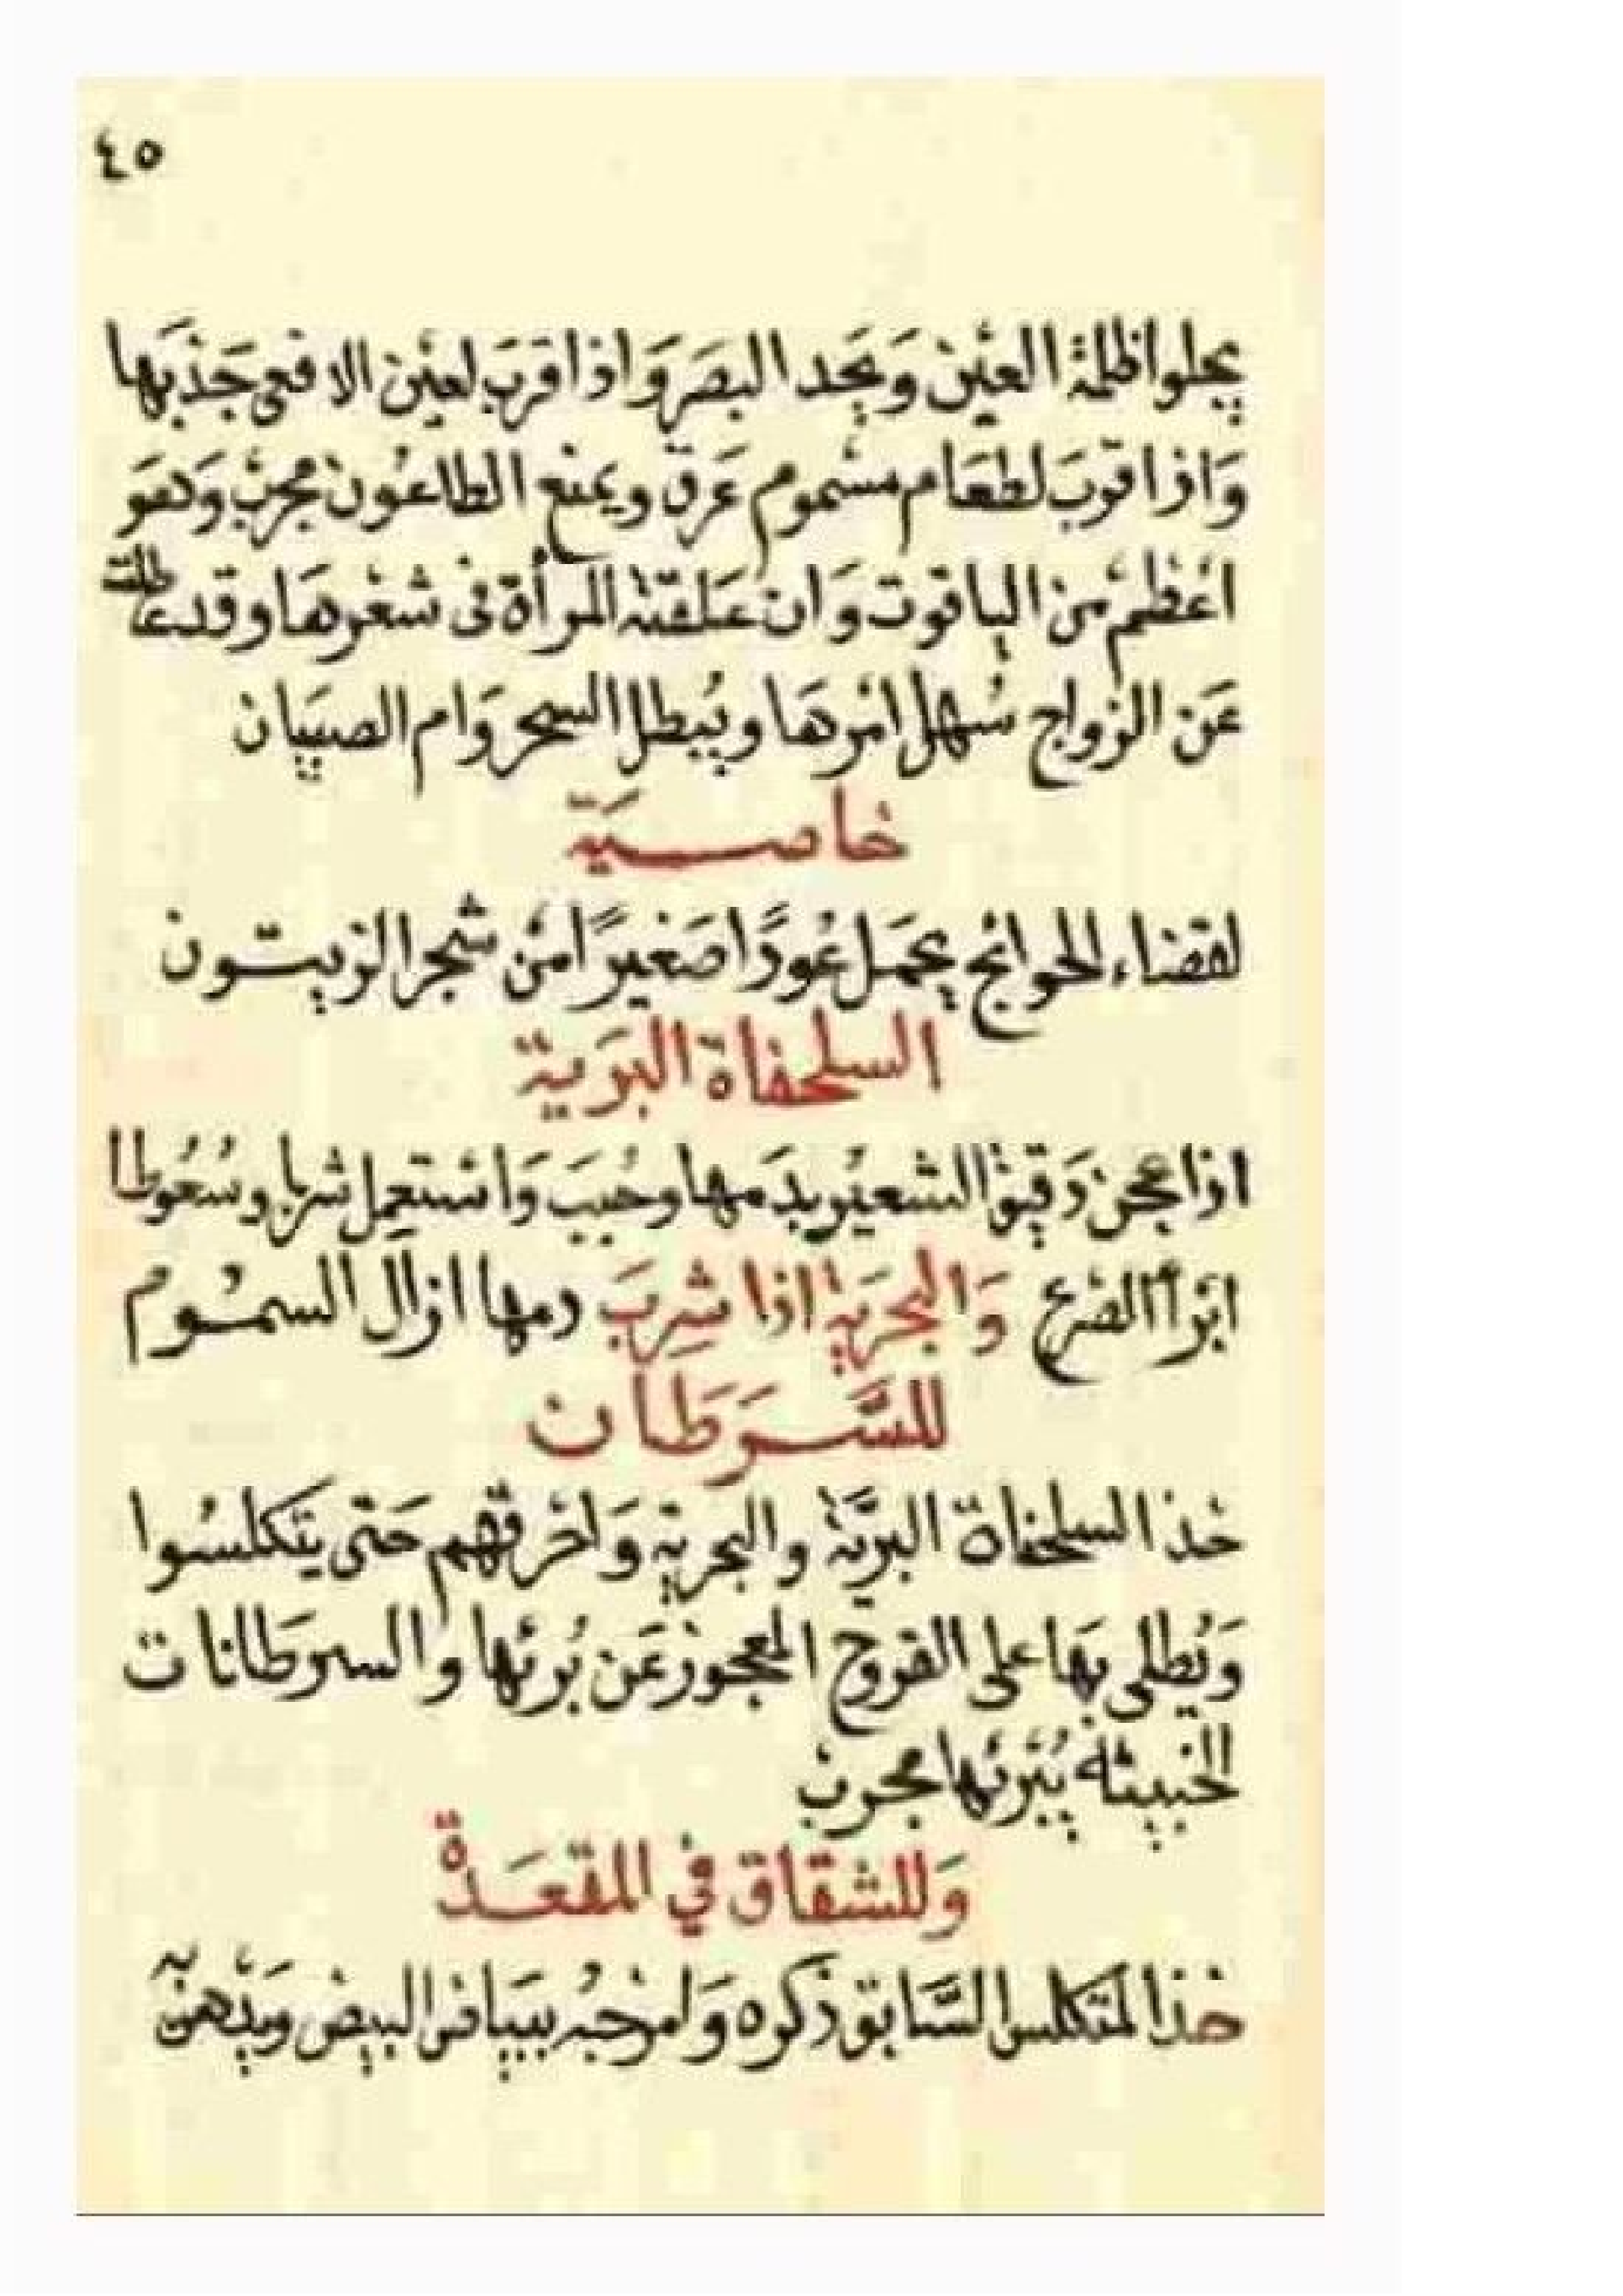 ٤٥
يجلوا ظلمة العين ويحد البصر واذا قرب لعين الافعى جذبها
واذا قرب لطعام مسموم عرق ويمنع الطاعون مجرب وهو
اعظم من الياقوت وان علقته المرأة فى شعرها وقد عطلت
عن الزواج سهل امرها ويبطل السحر وام الصبيان
خاصية
لقضاء الحوائج يحمل عودًا صغيرًا من شجر الزيتون
السلحفاة البرية
اذا عجن دقيق الشعير بدمها وحبب واستعمل شربا وسعوطا
ابرأ الصرع والبحرية اذا شرب دمها ازال السموم
للسرطان
خذ السلحفاة البرية والبحرية واحرقهم حتى يتكلسوا
ويطلى بها على القروح المعجوز عن برئها والسرطانات
الخبيثة يبرئها مجرب
وللشقاق في المقعدة
خذ المتكلس السابق ذكره وامزجه ببياض البيض ويدهن به